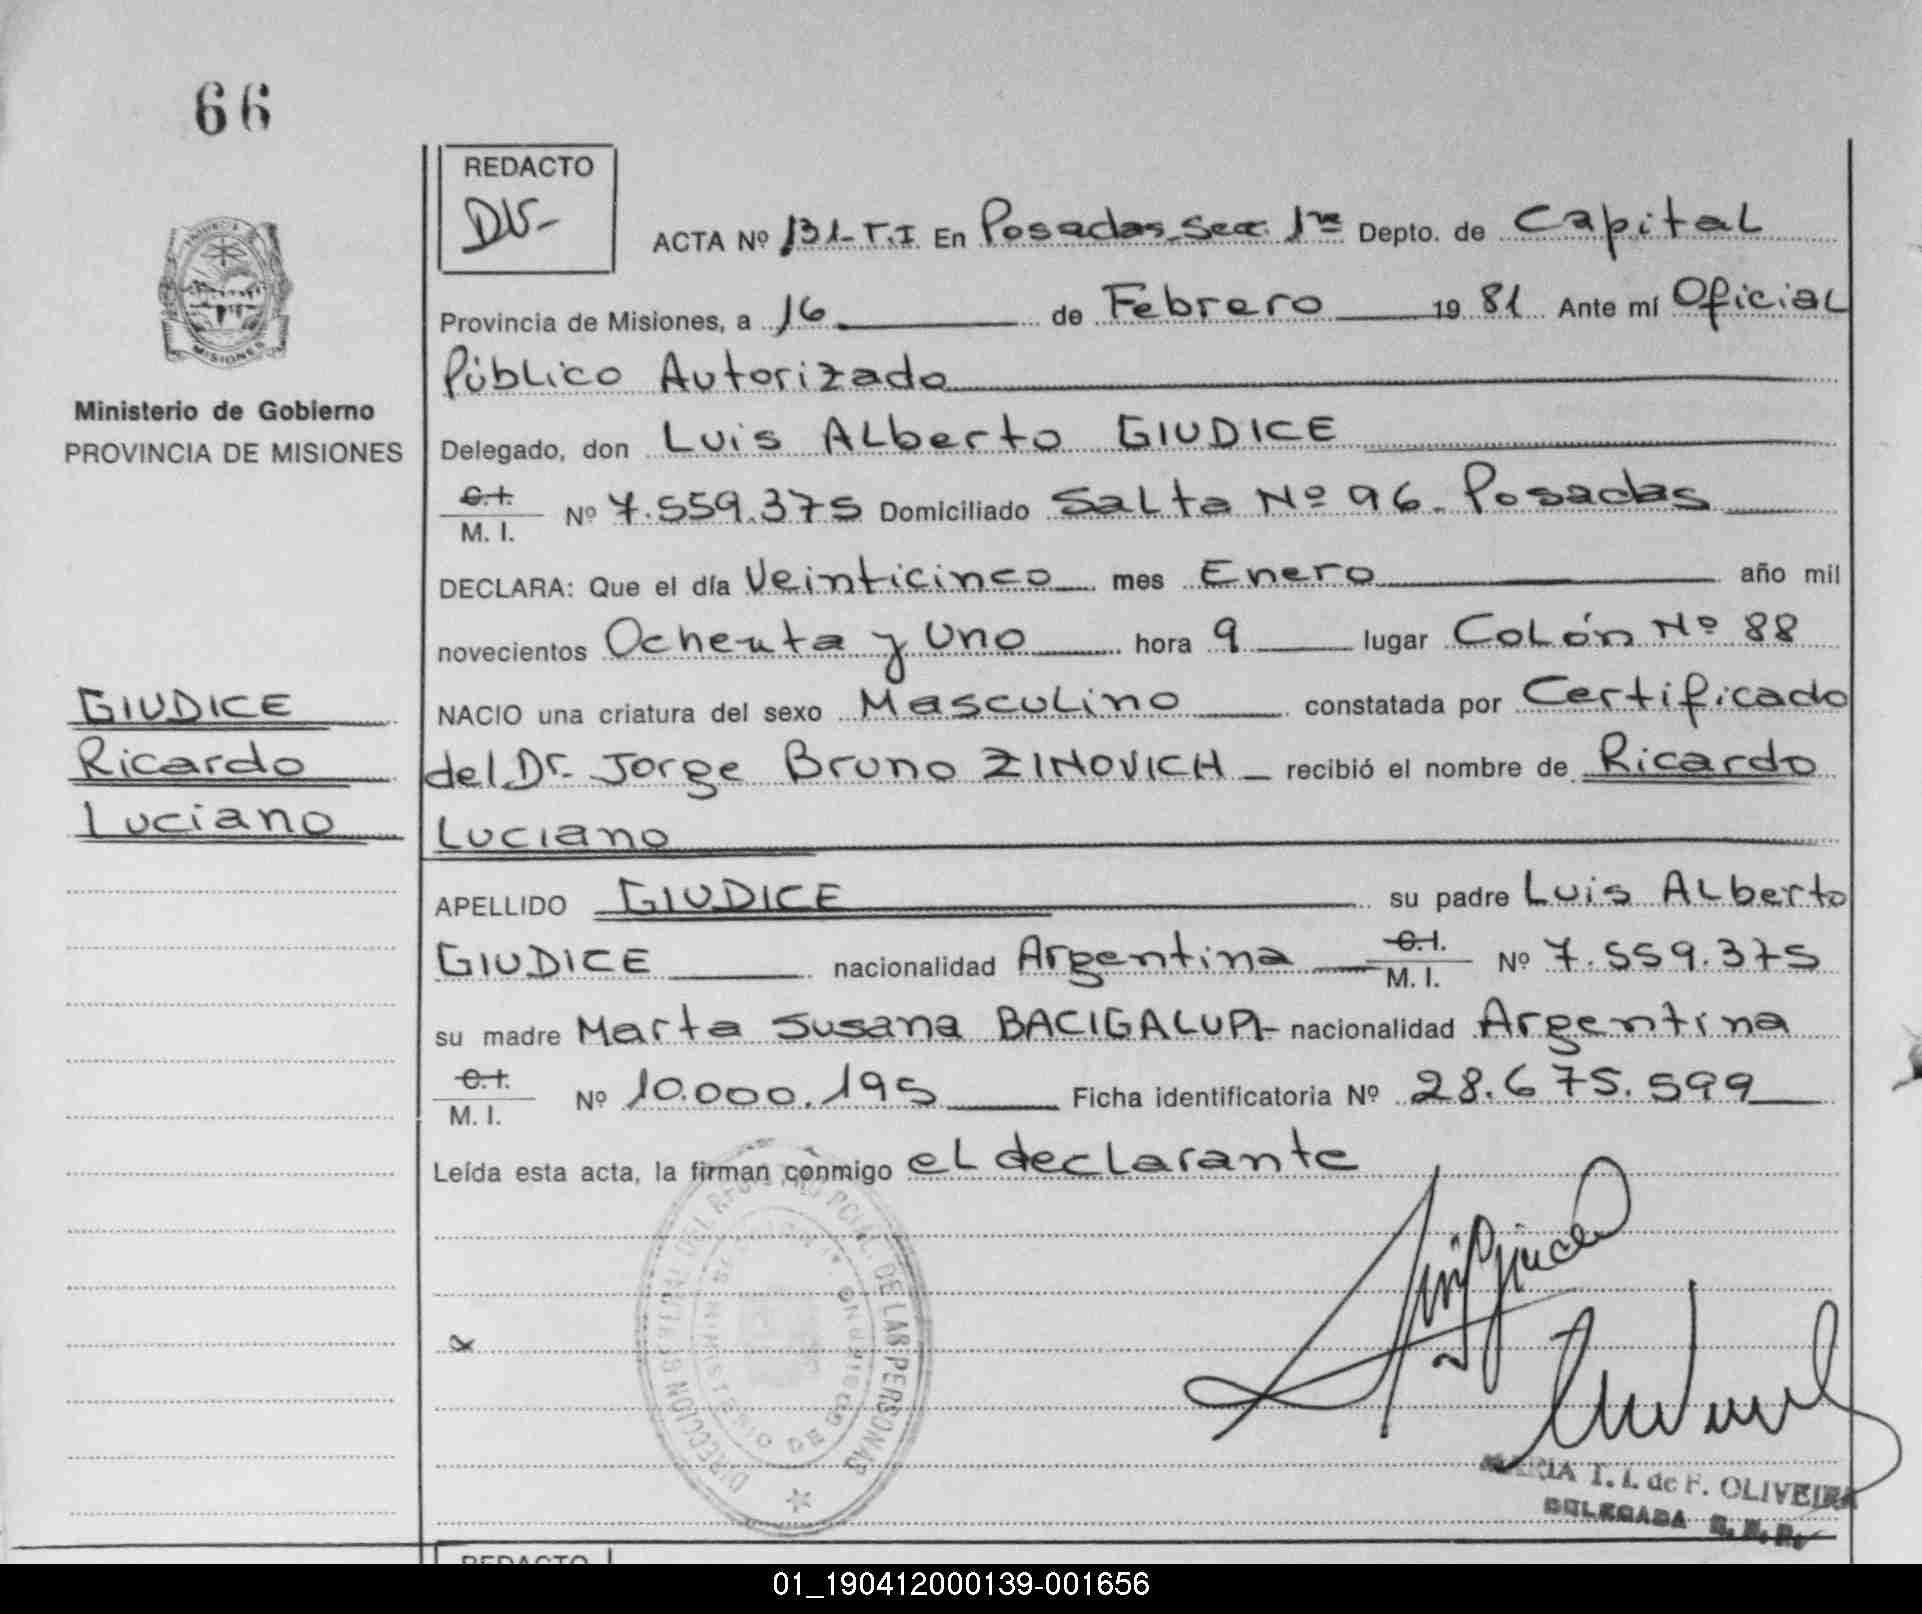 66
REDACTO
DV-
ACTA Nº 131-T.I En Posadas Secc. 1ra Depto. de Capital
Provincia de Misiones, a 16 de Febrero 1981 Ante mí Oficial
Público Autorizado
Ministerio de Gobierno
PROVINCIA DE MISIONES
Delegado, don Luis Alberto GIUDICE
C.I.
M. I. Nº 7.559.375 Domiciliado Salta Nº 96. Posadas
DECLARA: Que el día Veinticinco mes Enero año mil
novecientos Ochenta y Uno hora 9 lugar Colón Nº 88
GIUDICE
Ricardo
Luciano
NACIO una criatura del sexo Masculino constatada por Certificado
del Dr. Jorge Bruno ZINOVICH recibió el nombre de Ricardo
Luciano
APELLIDO GIUDICE su padre Luis Alberto
GIUDICE nacionalidad Argentina C.I. M. I. Nº 7.559.375
su madre Marta Susana BACIGALUPI nacionalidad Argentina
C.I.
M. I. Nº 10.000.195 Ficha identificatoria Nº 28.675.599
Leída esta acta, la firman conmigo el declarante
DIRECCION GENERAL DEL REGISTRO PCIAL. DE LAS PERSONAS
MINISTERIO DE GOBIERNO
MARIA T. I. de F. OLIVEIRA
DELEGADA
REDACTO
MISIONES
01_190412000139-001656